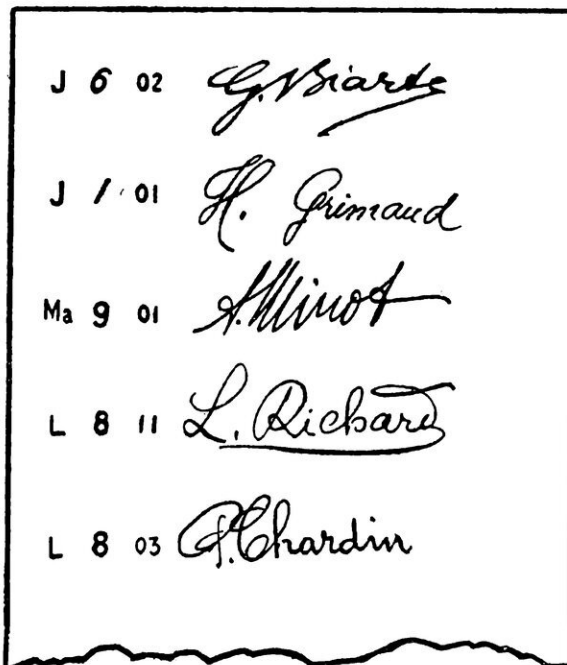 J 6 02 G. Biarte
J 1 01 H. Grimaud
Ma 9 01 A. Minot
L 8 11 L. Richard
L 8 03 P. Chardin